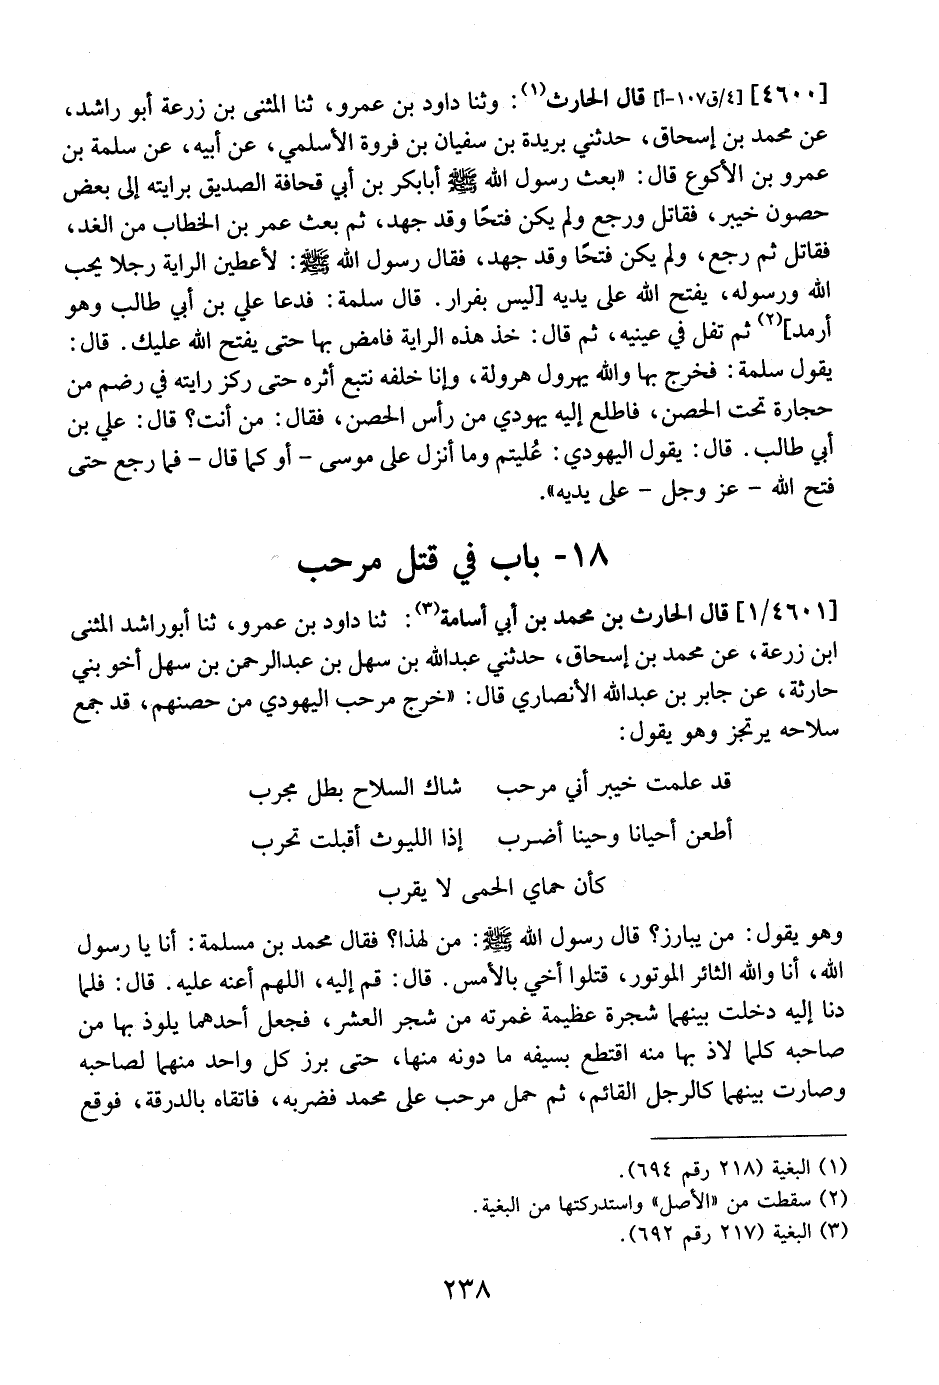 [٤٦٠٠] [٤/ق١٠٧-أ] قال الحارث(١): وثنا داود بن عمرو، ثنا المثنى بن زرعة أبو راشد،
عن محمد بن إسحاق، حدثني بريدة بن سفيان بن فروة الأسلمي، عن أبيه، عن سلمة بن
عمرو بن الأكوع قال: «بعث رسول الله ﷺ أبابكر بن أبي قحافة الصديق برايته إلى بعض
حصون خيبر، فقاتل ورجع ولم يكن فتحًا وقد جهد، ثم بعث عمر بن الخطاب من الغد،
فقاتل ثم رجع، ولم يكن فتحًا وقد جهد، فقال رسول الله ﷺ: لأعطين الراية رجلا يحب
الله ورسوله، يفتح الله على يديه [ليس بفرار. قال سلمة: فدعا علي بن أبي طالب وهو
أرمد](٢) ثم تفل في عينيه، ثم قال: خذ هذه الراية فامض بها حتى يفتح الله عليك. قال:
يقول سلمة: فخرج بها والله يهرول هرولة، وإنا خلفه نتبع أثره حتى ركز رايته في رضم من
حجارة تحت الحصن، فاطلع إليه يهودي من رأس الحصن، فقال: من أنت؟ قال: علي بن
أبي طالب. قال: يقول اليهودي: عُليتم وما أنزل على موسى - أو كما قال - فما رجع حتى
فتح الله - عز وجل - على يديه».
١٨- باب في قتل مرحب
[١/٤٦٠١] قال الحارث بن محمد بن أبي أسامة(٣): ثنا داود بن عمرو، ثنا أبوراشد المثنى
ابن زرعة، عن محمد بن إسحاق، حدثني عبدالله بن سهل بن عبدالرحمن بن سهل أخو بني
حارثة، عن جابر بن عبدالله الأنصاري قال: «خرج مرحب اليهودي من حصنهم، قد جمع
سلاحه يرتجز وهو يقول:
قد علمت خيبر أني مرحب شاك السلاح بطل مجرب
أطعن أحيانا وحينا أضرب إذا الليوث أقبلت تحرب
كأن حماي الحمى لا يقرب
وهو يقول: من يبارز؟ قال رسول الله ﷺ: من لهذا؟ فقال محمد بن مسلمة: أنا يا رسول
الله، أنا والله الثائر الموتور، قتلوا أخي بالأمس. قال: قم إليه، اللهم أعنه عليه. قال: فلما
دنا إليه دخلت بينهما شجرة عظيمة غمرته من شجر العشر، فجعل أحدهما يلوذ بها من
صاحبه كلما لاذ بها منه اقتطع بسيفه ما دونه منها، حتى برز كل واحد منهما لصاحبه
وصارت بينهما كالرجل القائم، ثم حمل مرحب على محمد فضربه، فاتقاه بالدرقة، فوقع
(١) البغية (٢١٨ رقم ٦٩٤).
(٢) سقطت من «الأصل» واستدركتها من البغية.
(٣) البغية (٢١٧ رقم ٦٩٢).
٢٣٨